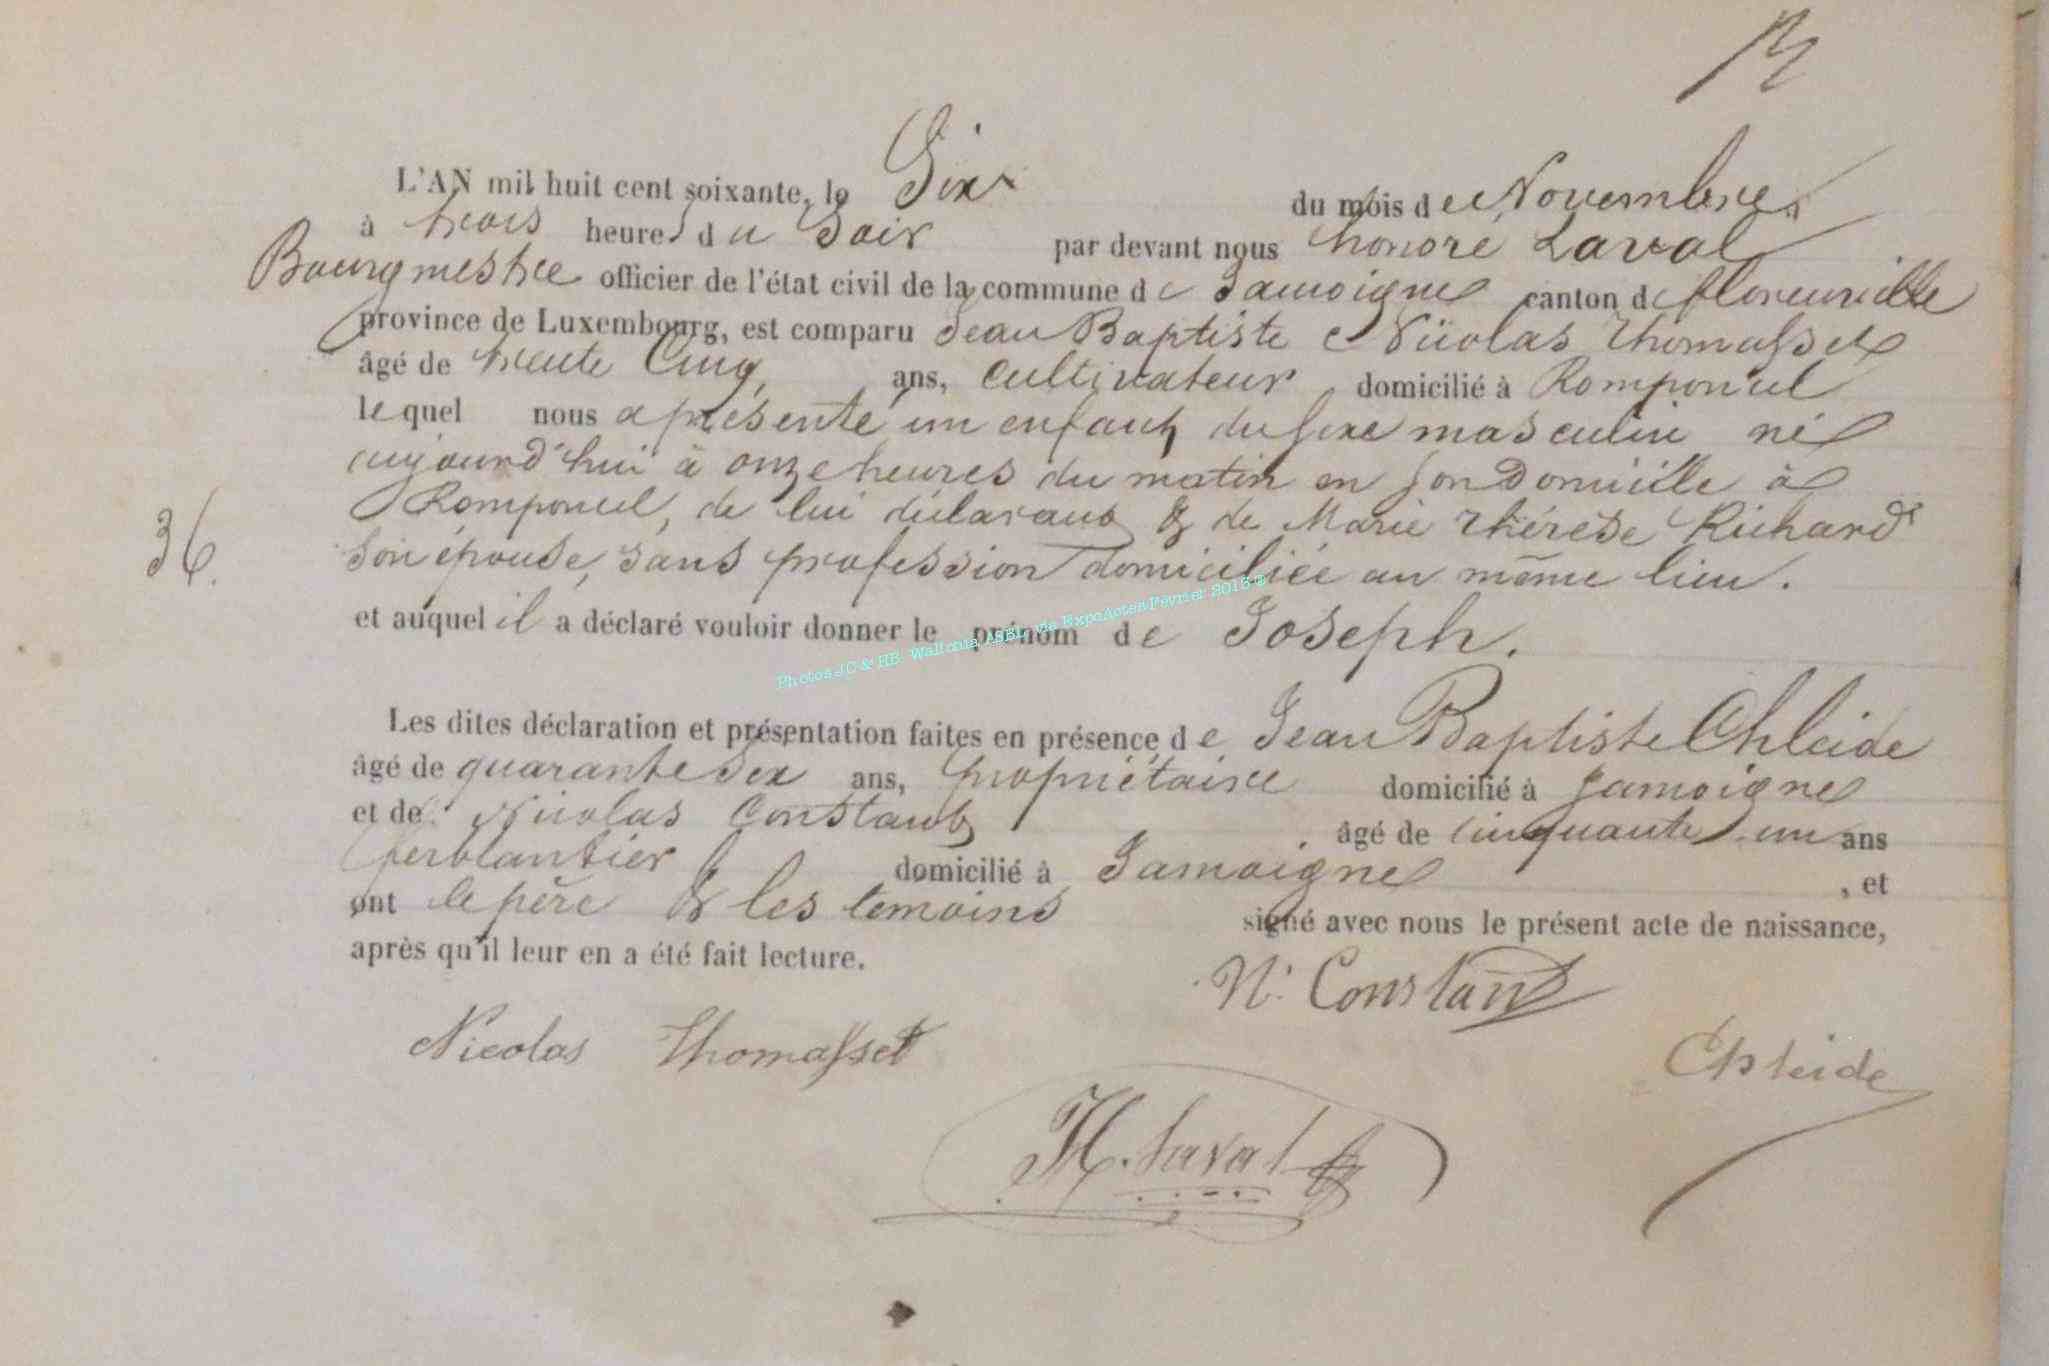 L'AN mil huit cent soixante, le Six du mois de Novembre,
à trois heures du Soir par devant nous honoré Laval
Bourgmestre officier de l'état civil de la commune de Jamoigne canton de florenville
province de Luxembourg, est comparu Jean Baptiste Nicolas Thomasset
âgé de trente Cinq, ans, Cultivateur domicilié à Romponcel
lequel nous a présenté un enfant du sexe masculin né
aujourd'hui à onze heures du matin en son Domicille à
Romponcel, de lui déclarant & de Marie Thérèse Richard
son épouse, sans profession domiciliée au même lieu.
36.
et auquel il a déclaré vouloir donner le prénom de Joseph.
Photos JC & HB Wallonia ASBL via ExpoActes Février 2015
Les dites déclaration et présentation faites en présence de Jean Baptiste Chleide
âgé de quarante six ans, propriétaire domicilié à Jamoigne
et de Nicolas Constant âgé de cinquante un ans
ferblantier domicilié à Jamoigne , et
ont le père & les temoins signé avec nous le présent acte de naissance,
après qu'il leur en a été fait lecture.
N. Constant
Nicolas Thomasset
Chleide
H. Laval